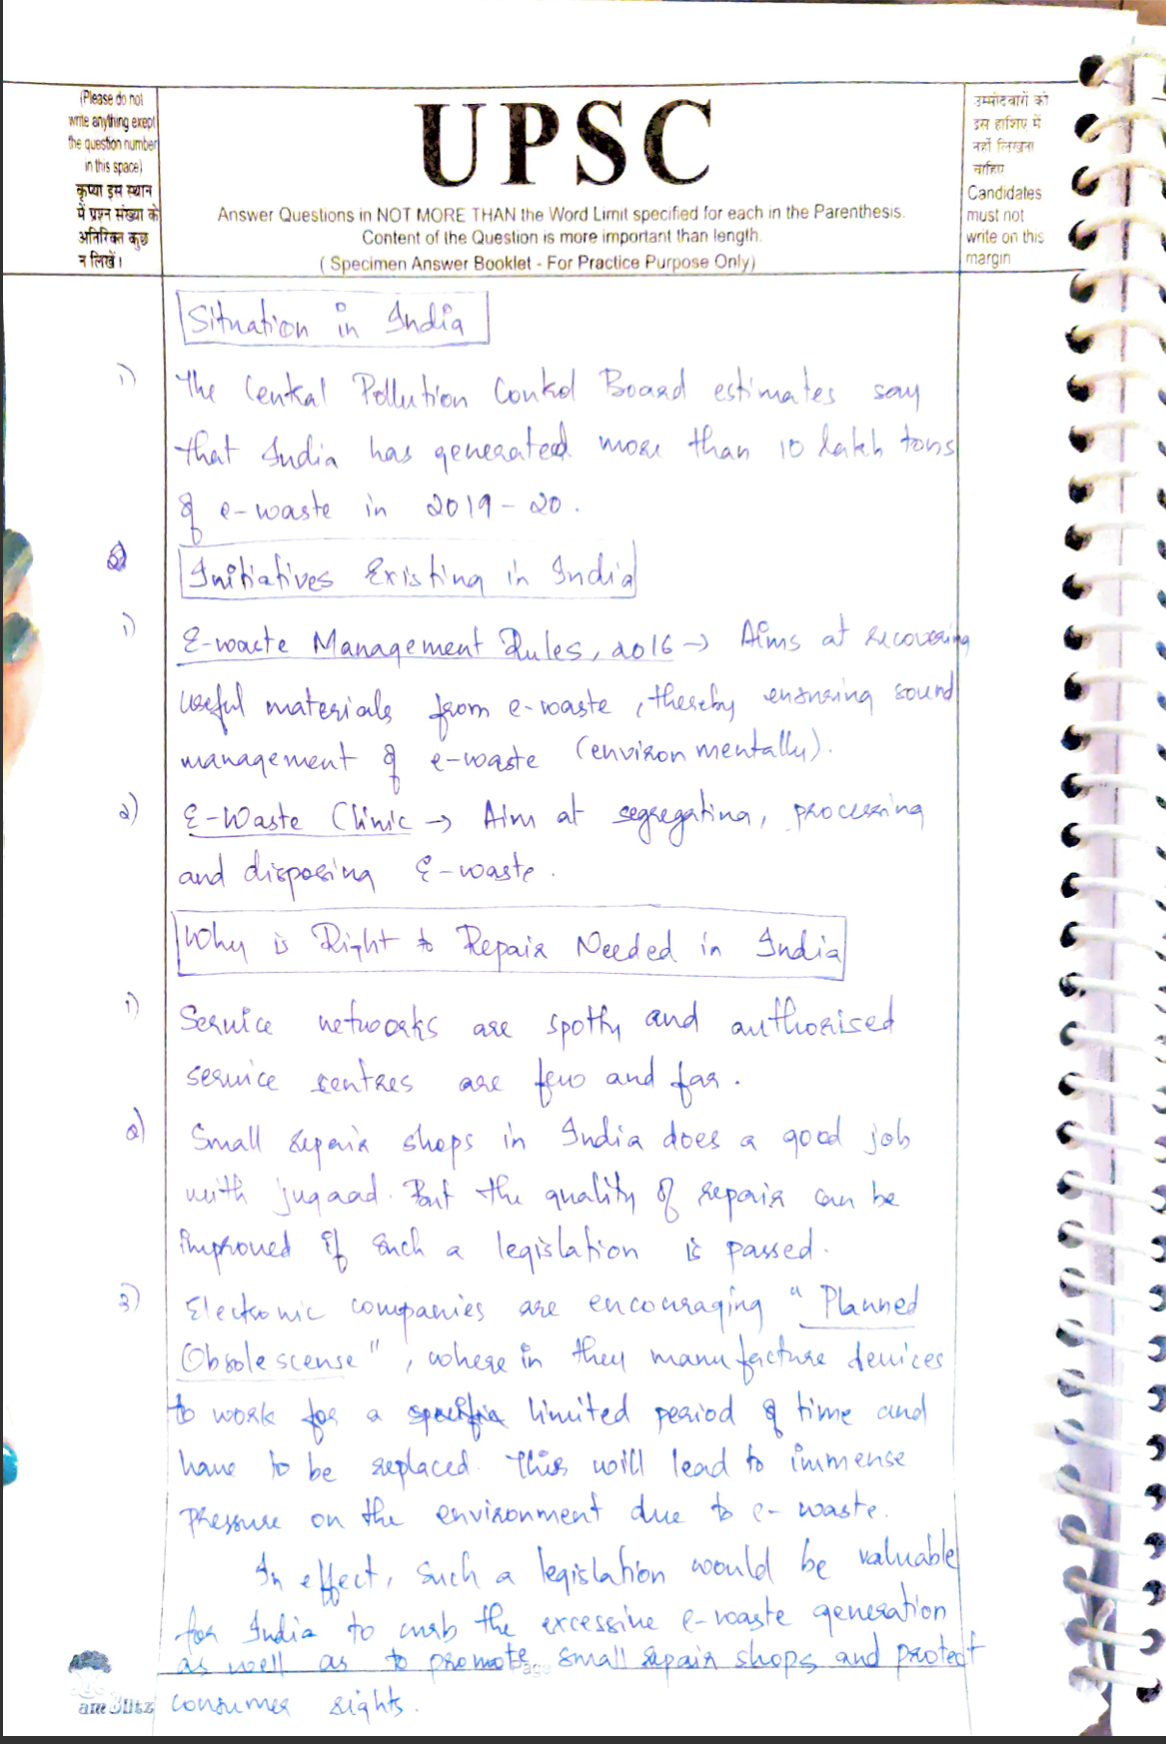 (Please do not
write anything exept
the question number
in this space)
कृप्या इस स्थान
में प्रश्न संख्या के
अतिरिक्त कुछ
न लिखें।
UPSC
Answer Questions in NOT MORE THAN the Word Limit specified for each in the Parenthesis.
Content of the Question is more important than length.
( Specimen Answer Booklet - For Practice Purpose Only)
उम्मीदवारों को
इस हाशिए में
नहीं लिखना
चाहिए
Candidates
must not
write on this
margin
Situation in India
1) The Central Pollution Control Board estimates say
that India has generated more than 10 lakh tons
of e-waste in 2019-20.
Initiatives Existing in India
1) E-waste Management Rules, 2016 → Aims at recovering
useful materials from e-waste, thereby ensuring sound
management of e-waste (environmentally).
2) E-Waste Clinic → Aim at segregating, processing
and disposing E-waste.
Why is Right to Repair Needed in India
1) Service networks are spotty and authorised
service centres are few and far.
2) Small repair shops in India does a good job
with jugaad. But the quality of repair can be
improved if such a legislation is passed.
3) Electronic companies are encouraging "Planned
Obsolescense", where in they manufacture devices
to work for a limited period of time and
have to be replaced. This will lead to immense
pressure on the environment due to e-waste.
In effect, such a legislation would be valuable
for India to curb the excessive e-waste generation
as well as to promote small repair shops and protect
consumer rights.